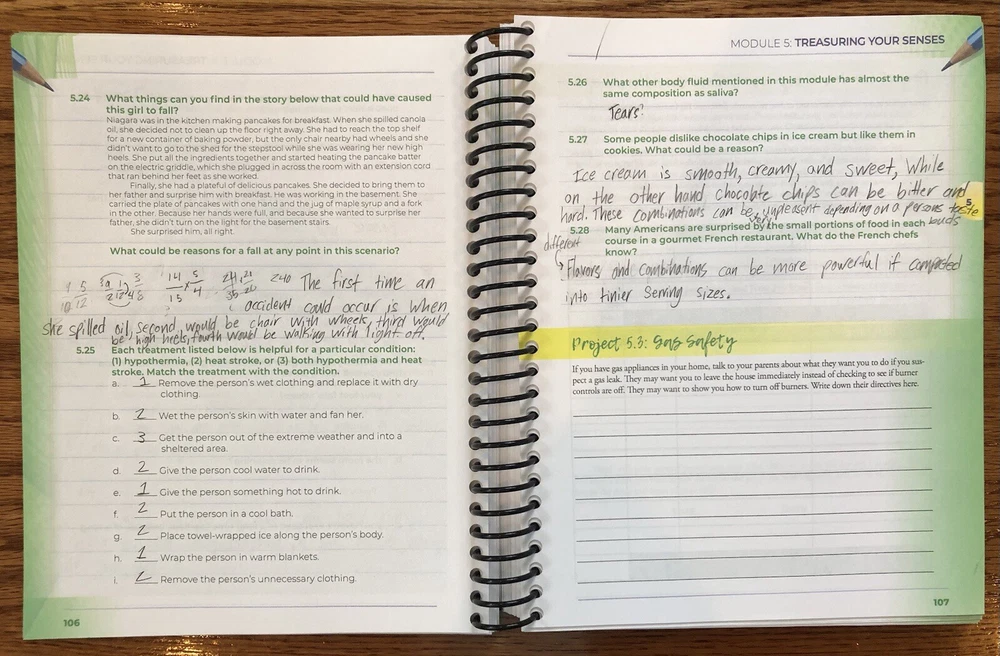 5.24 What things can you find in the story below that could have caused
this girl to fall?
Niagara was in the kitchen making pancakes for breakfast. When she spilled canola
oil, she decided not to clean up the floor right away. She had to reach the top shelf
for a new container of baking powder, but the only chair nearby had wheels and she
didn't want to go to the shed for the stepstool while she was wearing her new high
heels. She put all the ingredients together and started heating the pancake batter
on the electric griddle, which she plugged in across the room with an extension cord
that ran behind her feet as she worked.
Finally, she had a plateful of delicious pancakes. She decided to bring them to
her father and surprise him with breakfast. He was working in the basement. She
carried the plate of pancakes with one hand and the jug of maple syrup and a fork
in the other. Because her hands were full, and because she wanted to surprise her
father, she didn't turn on the light for the basement stairs.
She surprised him, all right.
What could be reasons for a fall at any point in this scenario?
240 The first time an
accident could occur is when
she spilled oil, Second, would be chair with wheels, third would
be high heels, fourth would be walking with light off.
5.25 Each treatment listed below is helpful for a particular condition:
(1) hypothermia, (2) heat stroke, or (3) both hypothermia and heat
stroke. Match the treatment with the condition.
a. 1 Remove the person's wet clothing and replace it with dry
clothing.
b. 2 Wet the person's skin with water and fan her.
c. 3 Get the person out of the extreme weather and into a
sheltered area.
d. 2 Give the person cool water to drink.
e. 1 Give the person something hot to drink.
f. 2 Put the person in a cool bath.
g. 2 Place towel-wrapped ice along the person's body.
h. 1 Wrap the person in warm blankets.
i. 2 Remove the person's unnecessary clothing.
106
MODULE 5: TREASURING YOUR SENSES
5.26 What other body fluid mentioned in this module has almost the
same composition as saliva?
Tears?
5.27 Some people dislike chocolate chips in ice cream but like them in
cookies. What could be a reason?
Ice cream is smooth, creamy, and sweet, While
on the other hand chocolate chips can be bitter and
hard. These combinations can be very unpleasent depending on a persons taste
buds
5
5.28 Many Americans are surprised by the small portions of food in each
course in a gourmet French restaurant. What do the French chefs
know?
different
Flavors and combinations can be more powerful if compacted
into tinier serving sizes.
Project 5.3: Gas Safety
If you have gas appliances in your home, talk to your parents about what they want you to do if you sus-
pect a gas leak. They may want you to leave the house immediately instead of checking to see if burner
controls are off. They may want to show you how to turn off burners. Write down their directives here.
107